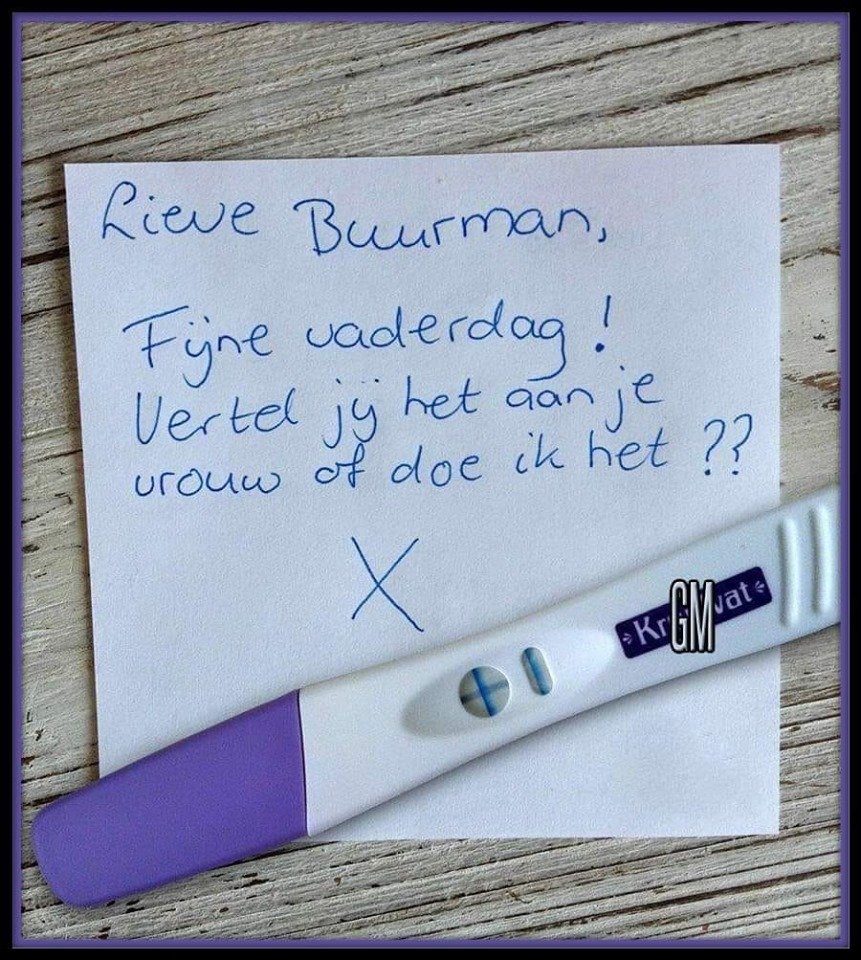 Lieve Buurman,
Fijne vaderdag!
Vertel jij het aan je
vrouw of doe ik het ??
X
GM